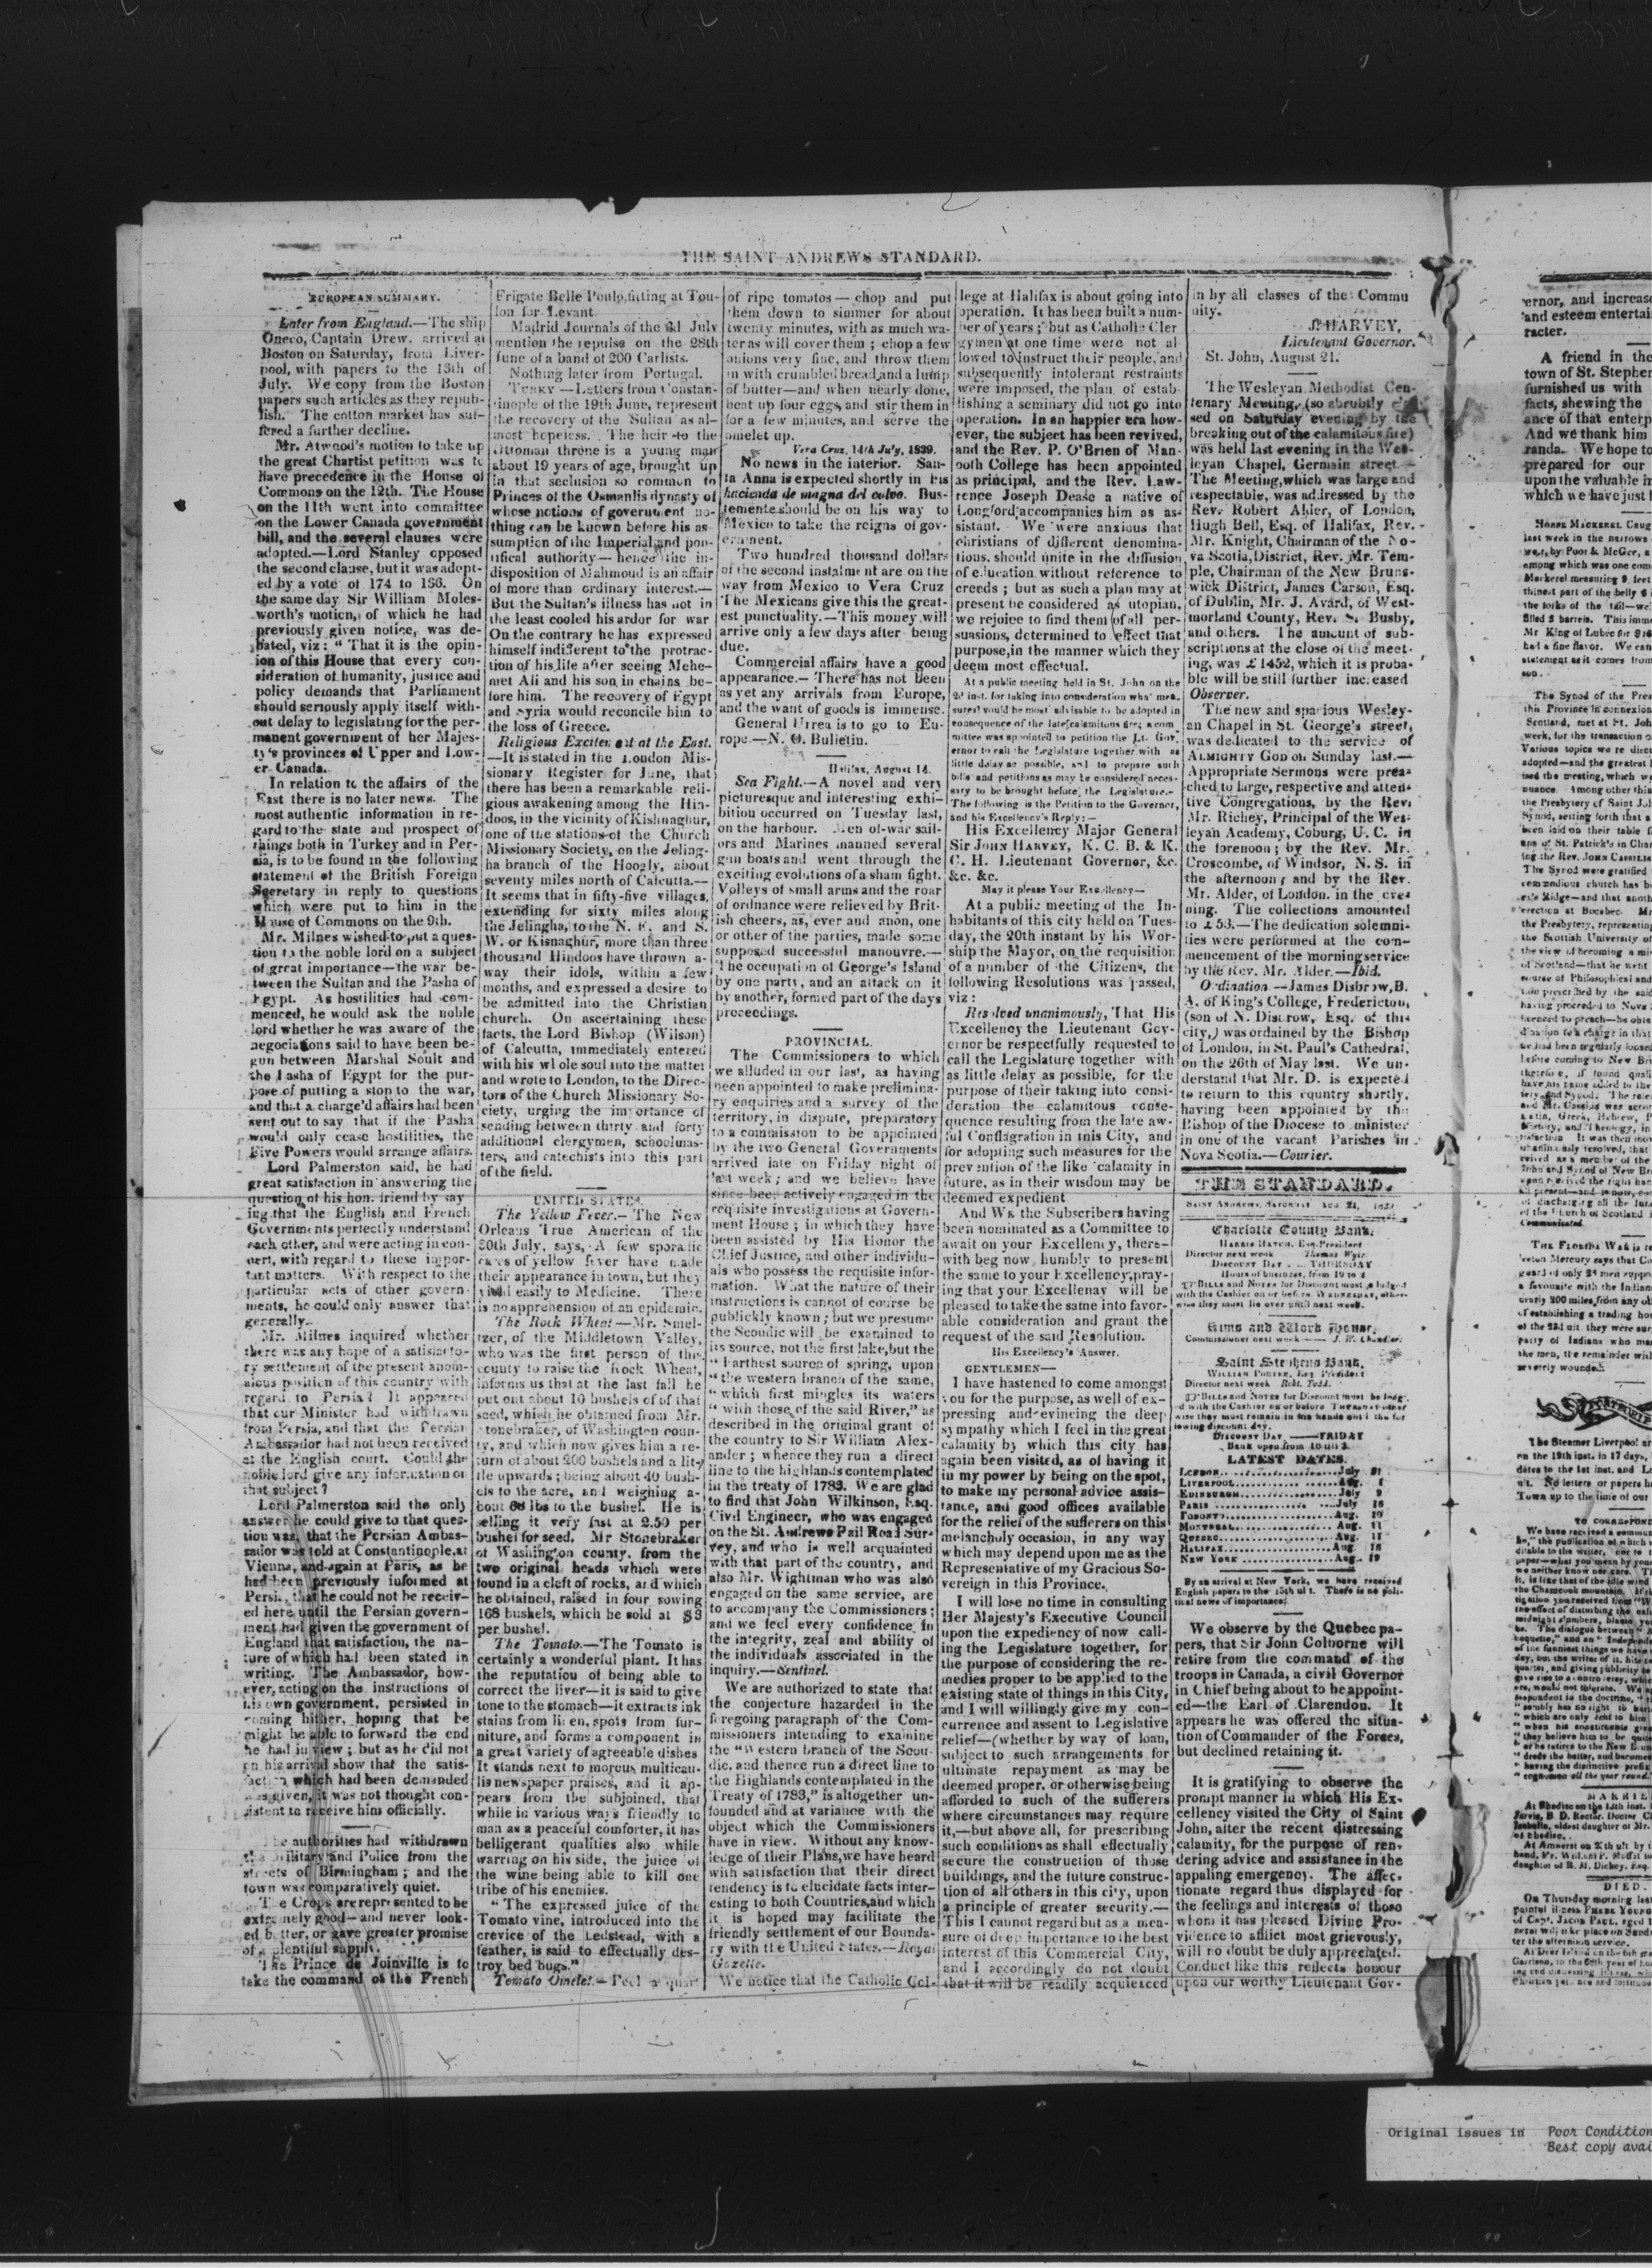 THE SAINT ANDREWS STANDARD.
EUROPEAN SUMMARY.
Later from England.—The ship
Oneco, Captain Drew. arrived at
Boston on Saturday, from Liver-
pool, with papers to the 13th of
July. We copy from the Boston
papers such articles as they repub-
lish. The cotton market has suf-
fered a further decline.
Mr. Atwood's motion to take up
the great Chartist petition was to
have precedence in the House of
Commons on the 12th. The House
on the 11th went into committee
on the Lower Canada government
bill, and the several clauses were
adopted.—Lord Stanley opposed
the second clause, but it was adopt-
ed by a vote of 174 to 156. On
the same day Sir William Moles-
worth's motion, of which he had
previously given notice, was de-
bated, viz: "That it is the opin-
ion of this House that every con-
sideration of humanity, justice and
policy demands that Parliament
should seriously apply itself with-
out delay to legislating for the per-
manent government of her Majes-
ty's provinces of Upper and Low-
er Canada.
In relation to the affairs of the
East there is no later news. The
most authentic information in re-
gard to the state and prospect of
things both in Turkey and in Per-
sia, is to be found in the following
statement of the British Foreign
Secretary in reply to questions
which were put to him in the
House of Commons on the 9th.
Mr. Milnes wished to put a ques-
tion to the noble lord on a subject
of great importance—the war be-
tween the Sultan and the Pasha of
Egypt. As hostilities had com-
menced, he would ask the noble
lord whether he was aware of the
negociations said to have been be-
gun between Marshal Soult and
the Pasha of Egypt for the pur-
pose of putting a stop to the war,
and that a charge'd affairs had been
sent out to say that if the Pasha
would only cease hostilities, the
Five Powers would arrange affairs.
Lord Palmerston said, he had
great satisfaction in answering the
question of his hon. friend by say
ing that the English and French
Governments perfectly understand
each other, and were acting in con-
cert, with regard to these impor-
tant matters. With respect to the
particular acts of other govern-
ments, he could only answer that
generally.
Mr. Milnes inquired whether
there was any hope of a satisfacto-
ry settlement of the present anom-
alous position of this country with
regard to Persia? It appeared
that our Minister had withdrawn
from Persia, and that the Persian
Ambassador had not been received
at the English court. Could the
noble lord give any information on
that subject?
Lord Palmerston said the only
answer he could give to that ques-
tion was, that the Persian Ambas-
sador was told at Constantinople, at
Vienna, and again at Paris, as he
had been previously informed at
Persia, that he could not be receiv-
ed here until the Persian govern-
ment had given the government of
England that satisfaction, the na-
ture of which had been stated in
writing. The Ambassador, how-
ever, acting on the instructions of
his own government, persisted in
coming hither, hoping that he
might be able to forward the end
he had in view; but as he did not
on his arrival show that the satis-
faction which had been demanded
was given, it was not thought con-
sistent to receive him officially.
The authorities had withdrawn
the military and Police from the
streets of Birmingham; and the
town was comparatively quiet.
The Crops are represented to be
extremely good—and never look-
ed better, or gave greater promise
of a plentiful supply.
The Prince de Joinville is to
take the command of the French
Frigate Belle Poule, fitting at Tou-
lon for Levant
Madrid Journals of the 3d July
mention the repulse on the 28th
June of a band of 200 Carlists.
Nothing later from Portugal.
TURKY—Letters from Constan-
tinople of the 19th June, represent
the recovery of the Sultan as al-
most hopeless. The heir to the
Ottoman throne is a young man
about 19 years of age, brought up
in that seclusion so common to
Princes of the Osmanlis dynasty of
whose notions of government no-
thing can be known before his as-
sumption of the Imperial and pon-
tifical authority—hence the in-
disposition of Mahmoud is an affair
of more than ordinary interest.—
But the Sultan's illness has not in
the least cooled his ardor for war
On the contrary he has expressed
himself indifferent to the protrac-
tion of his life after seeing Mehe-
met Ali and his son in chains be-
fore him. The recovery of Egypt
and Syria would reconcile him to
the loss of Greece.
Religious Excitement at the East.
—It is stated in the London Mis-
sionary Register for June, that
there has been a remarkable reli-
gious awakening among the Hin-
doos, in the vicinity of Kishnaghur,
one of the stations of the Church
Missionary Society, on the Jeling-
ha branch of the Hoogly, about
seventy miles north of Calcutta.—
It seems that in fifty-five villages,
extending for sixty miles along
the Jelingha, to the N. E. and S.
W. or Kisnaghur, more than three
thousand Hindoos have thrown a-
way their idols, within a few
months, and expressed a desire to
be admitted into the Christian
church. On ascertaining these
facts, the Lord Bishop (Wilson)
of Calcutta, immediately entered
with his whole soul into the matter
and wrote to London, to the Direc-
tors of the Church Missionary So-
ciety, urging the importance of
sending between thirty and forty
additional clergymen, schoolmas-
ters, and catechists into this part
of the field.
UNITED STATES.
The Yellow Fever.—The New
Orleans True American of the
30th July, says, A few sporadic
cases of yellow fever have made
their appearance in town, but they
yield easily to Medicine. There
is no apprehension of an epidemic.
The Rock Wheat—Mr. Smel-
tzer, of the Middletown Valley,
who was the first person of this
county to raise the Rock Wheat,
informs us that at the last fall he
put out about 10 bushels of of that
seed, which he obtained from Mr.
Stonebraker, of Washington coun-
ty, and which now gives him a re-
turn of about 200 bushels and a lit-
tle upwards; being about 40 bush-
els to the acre, and weighing a-
bout 68 lbs to the bushel. He is
selling it very fast at 2.50 per
bushel for seed. Mr Stonebraker
of Washington county. from the
two original heads which were
found in a cleft of rocks, and which
he obtained, raised in four sowing
168 bushels, which he sold at $3
per bushel.
The Tomato.—The Tomato is
certainly a wonderful plant. It has
the reputation of being able to
correct the liver—it is said to give
tone to the stomach—it extracts ink
stains from linen, spots from fur-
niture, and forms a component in
a great variety of agreeable dishes
It stands next to morcus multicau-
lis newspaper praises, and it ap-
pears from the subjoined, that
while in various ways friendly to
man as a peaceful comforter, it has
belligerant qualities also while
warring on his side, the juice of
the wine being able to kill one
tribe of his enemies.
"The expressed juice of the
Tomato vine, introduced into the
crevice of the Ledstead, with a
feather, is said to effectually des-
troy bed bugs."
Tomato Omelet.—Peel a quart
of ripe tomatos—chop and put
them down to simmer for about
twenty minutes, with as much wa-
ter as will cover them; chop a few
onions very fine, and throw them
in with crumbled bread, and a lump
of butter—and when nearly done,
beat up four eggs, and stir them in
for a few minutes, and serve the
omelet up.
Vera Cruz, 14th July, 1839.
No news in the interior. San-
ta Anna is expected shortly in his
hacienda de magna del culvo. Bus-
temente should be on his way to
Mexico to take the reigns of gov-
ernment.
Two hundred thousand dollars
of the second instalment are on the
way from Mexico to Vera Cruz
The Mexicans give this the great-
est punctuality.—This money will
arrive only a few days after being
due.
Commercial affairs have a good
appearance.—There has not been
as yet any arrivals from Europe,
and the want of goods is immense.
General Urrea is to go to Eu-
rope.—N. O. Bulletin.
Halifax, August 14.
Sea Fight.—A novel and very
picturesque and interesting exhi-
bition occurred on Tuesday last,
on the harbour. Men of-war sail-
ors and Marines manned several
gun boats and went through the
exciting evolutions of a sham fight.
Volleys of small arms and the roar
of ordnance were relieved by Brit-
ish cheers, as, ever and anon, one
or other of the parties, made some
supposed successful manouvre.—
The occupation of George's Island
by one party, and an attack on it
by another, formed part of the days
proceedings.
PROVINCIAL.
The Commissioners to which
we alluded in our last, as having
been appointed to make prelimina-
ry enquiries and a survey of the
territory, in dispute, preparatory
to a commission to be appointed
by the two General Governments
arrived late on Friday night of
last week; and we believe have
since been actively engaged in the
requisite investigations at Govern-
ment House; in which they have
been assisted by His Honor the
Chief Justice, and other individu-
als who possess the requisite infor-
mation. What the nature of their
instructions is cannot of course be
publickly known; but we presume
the Scoudic will be examined to
its source, not the first lake, but the
"Farthest source of spring, upon
"the western branch of the same,
"which first mingles its waters
"with those of the said River," as
described in the original grant of
the country to Sir William Alex-
ander; whence they run a direct
line to the highlands contemplated
in the treaty of 1783. We are glad
to find that John Wilkinson, Esq.
Civil Engineer, who was engaged
on the St. Andrews Rail Road Sur-
vey, and who is well acquainted
with that part of the country, and
also Mr. Wightman who was also
engaged on the same service, are
to accompany the Commissioners;
and we feel every confidence in
the integrity, zeal and ability of
the individuals associated in the
inquiry.—Sentinel.
We are authorized to state that
the conjecture hazarded in the
foregoing paragraph of the Com-
missioners intending to examine
the "Western branch of the Scou-
dic, and thence run a direct line to
the Highlands contemplated in the
Treaty of 1783," is altogether un-
founded and at variance with the
object which the Commissioners
have in view. Without any know-
ledge of their Plans, we have heard
with satisfaction that their direct
tendency is to elucidate facts inter-
esting to both Countries, and which
it is hoped may facilitate the
friendly settlement of our Bounda-
ry with the United States.—Royal
Gazette.
We notice that the Catholic Col-
lege at Halifax is about going into
operation. It has been built a num-
ber of years; but as Catholic Cler
gymen at one time were not al-
lowed to instruct their people, and
subsequently intolerant restraints
were imposed, the plan of estab-
lishing a seminary did not go into
operation. In an happier era how-
ever, the subject has been revived,
and the Rev. P. O'Brien of Man-
ooth College has been appointed
as principal, and the Rev. Law-
rence Joseph Dease a native of
Longford accompanies him as as-
sistant. We were anxious that
christians of different denomina-
tions. should unite in the diffusion
of education without reference to
creeds; but as such a plan may at
present be considered as utopian,
we rejoice to find them of all per-
suasions, determined to effect that
purpose, in the manner which they
deem most effectual.
At a public meeting held in St. John on the
2d inst. for taking into consideration what mea.
sures would be most advisable to be adopted in
consequence of the late calamitous fire; a com
mittee was appointed to petition the Lt. Gov.
ernor to call the Legislature together with as
little delay as possible, and to prepare such
bills and petitions as may be considered neces-
sary to be brought before the Legislature.—
The following is the Petition to the Governor,
and his Excellency's Reply:—
His Excellency Major General
Sir JOHN HARVEY, K. C. B. & K.
C. H. Lieutenant Governor, &c.
&c. &c.
May it please Your Excellency—
At a public meeting of the In-
habitants of this city held on Tues-
day, the 20th instant by his Wor-
ship the Mayor, on the requisition
of a number of the Citizens, the
following Resolutions was passed,
viz:
Resolved unanimously, That His
Excellency the Lieutenant Gov-
ernor be respectfully requested to
call the Legislature together with
as little delay as possible, for the
purpose of their taking into consi-
deration the calamitous conse-
quence resulting from the late aw-
ful Conflagration in this City, and
for adopting such measures for the
prevention of the like calamity in
future, as in their wisdom may be
deemed expedient
And We the Subscribers having
been nominated as a Committee to
await on your Excellency, there-
with beg now, humbly to present
the same to your Excellency, pray-
ing that your Excellenay will be
pleased to take the same into favor-
able consideration and grant the
request of the said Resolution.
His Excellency's Answer.
GENTLEMEN—
I have hastened to come amongst
you for the purpose, as well of ex-
pressing and evincing the deep
sympathy which I feel in the great
calamity by which this city has
again been visited, as of having it
in my power by being on the spot,
to make my personal advice assis-
tance, and good offices available
for the relief of the sufferers on this
melancholy occasion, in any way
which may depend upon me as the
Representative of my Gracious So-
vereign in this Province.
I will lose no time in consulting
Her Majesty's Executive Council
upon the expediency of now call-
ing the Legislature together, for
the purpose of considering the re-
medies proper to be applied to the
existing state of things in this City,
and I will willingly give my con-
currence and assent to Legislative
relief—(whether by way of loan,
subject to such arrangements for
ultimate repayment as may be
deemed proper, or otherwise being
afforded to such of the sufferers
where circumstances may require
it,—but above all, for prescribing
such conditions as shall effectually
secure the construction of those
buildings, and the future construc-
tion of all others in this city, upon
a principle of greater security.—
This I cannot regard but as a mea-
sure of deep importance to the best
interest of this Commercial City,
and I accordingly do not doubt
that it will be readily acquiesced
in by all classes of the Commu
nity.
J. HARVEY,
Lieutenant Governor.
St. John, August 21.
The Wesleyan Methodist Cen-
tenary Meeting, (so abrubtly
sed on Saturday evening by the
breaking out of the calamitous fire)
was held last evening in the Wes-
leyan Chapel, Germain street.—
The Meeting, which was large and
respectable, was addressed by the
Rev. Robert Alder, of London,
Hugh Bell, Esq. of Halifax, Rev.
Mr. Knight, Chairman of the No-
va Scotia, District, Rev. Mr. Tem-
ple, Chairman of the New Bruns-
wick District, James Carson, Esq.
of Dublin, Mr. J. Avard, of West-
morland County, Rev. S. Busby,
and others. The amount of sub-
scriptions at the close of the meet-
ing, was £1452, which it is proba-
ble will be still further increased
Observer.
The new and spacious Wesley-
an Chapel in St. George's street,
was dedicated to the service of
ALMIGHTY GOD on Sunday last.—
Appropriate Sermons were prea-
ched to large, respective and atten-
tive Congregations, by the Rev.
Mr. Richey, Principal of the Wes-
leyan Academy, Coburg, U. C. in
the forenoon; by the Rev. Mr.
Croscombe, of Windsor, N. S. in
the afternoon; and by the Rev.
Mr. Alder, of London. in the eve-
ning. The collections amounted
to £53.—The dedication solemni-
ties were performed at the com-
mencement of the morning service
by the Rev. Mr. Alder.—Ibid.
Ordination.—James Disbrow, B.
A. of King's College, Fredericton,
(son of N. Disbrow, Esq. of this
city,) was ordained by the Bishop
of London, in St. Paul's Cathedral,
on the 26th of May last. We un-
derstand that Mr. D. is expected
to return to this country shortly,
having been appointed by the
Bishop of the Diocese to minister
in one of the vacant Parishes in
Nova Scotia.—Courier.
THE STANDARD.
SAINT ANDREWS, SATURDAY AUG. 24, 1839
Charlotte County Bank.
HARRIS HATCH, Esq. President
Director next week Thomas Wyer.
DISCOUNT DAY THURSDAY
Hours of business, from 10 to 2
BILLS and NOTES for Discount must be lodged
with the Cashier on or before WEDNESDAY, other-
wise they must lie over until next week.
Alms and Work House.
Commissioner next week—J. W. Chandler.
Saint Stephens Bank.
WILLIAM PORTER, Esq President
Director next week Robt. Todd.
BILLS and NOTES for Discount must be lodg'
d with the Cashier on or before THURSDAY other
wise they must remain in the hands until the fol
lowing discount day.
DISCOUNT DAY—FRIDAY
Bank open from 10 till 2
LATEST DATES.
LONDON July 31
LIVERPOOL Aug. 1
EDINBURGH July 9
PARIS July 16
TORONTO Aug. 10
MONTREAL Aug. 11
QUEBEC Aug. 11
HALIFAX Aug. 16
NEW YORK Aug. 19
By an arrival at New York, we have received
English papers to the 15th ult. There is no poli-
tical news of importance.
We observe by the Quebec pa-
pers, that Sir John Colborne will
retire from the command of the
troops in Canada, a civil Governor
in Chief being about to be appoint-
ed—the Earl of Clarendon. It
appears he was offered the situa-
tion of Commander of the Forces,
but declined retaining it.
It is gratifying to observe the
prompt manner in which His Ex-
cellency visited the City of Saint
John, after the recent distressing
calamity, for the purpose of ren-
dering advice and assistance in the
appaling emergency. The affec-
tionate regard thus displayed for
the feelings and interests of those
whom it has pleased Divine Pro-
vidence to afflict most grievously,
will no doubt be duly appreciated.
Conduct like this reflects honour
upon our worthy Lieutenant Gov-
ernor, and increase
and esteem entertai
racter.
A friend in the
town of St. Stephen
furnished us with
facts, shewing the
ance of that enterp
And we thank him
randa. We hope to
prepared for our
upon the valuable in
which we have just
HORSE MACKEREL Caug
last week in the narrows
by Poor & McGee, a
among which was one
Mackerel measuring 9 feet
thinest part of the belly 6
the forks of the tail—
filled 5 barrels. This imm
Mr King of Lubec for $16
had a fine flavor. We can
statement as it comes from
The Synod of the Pres
this Province in connexion
Scotland, met at St. Joh
week, for the transaction o
Various topics were discu
adopted—and the greatest
THE FLORIDA WAR is re
MARRIE
DIED.
Original issues in Poor Condition
Best copy avai